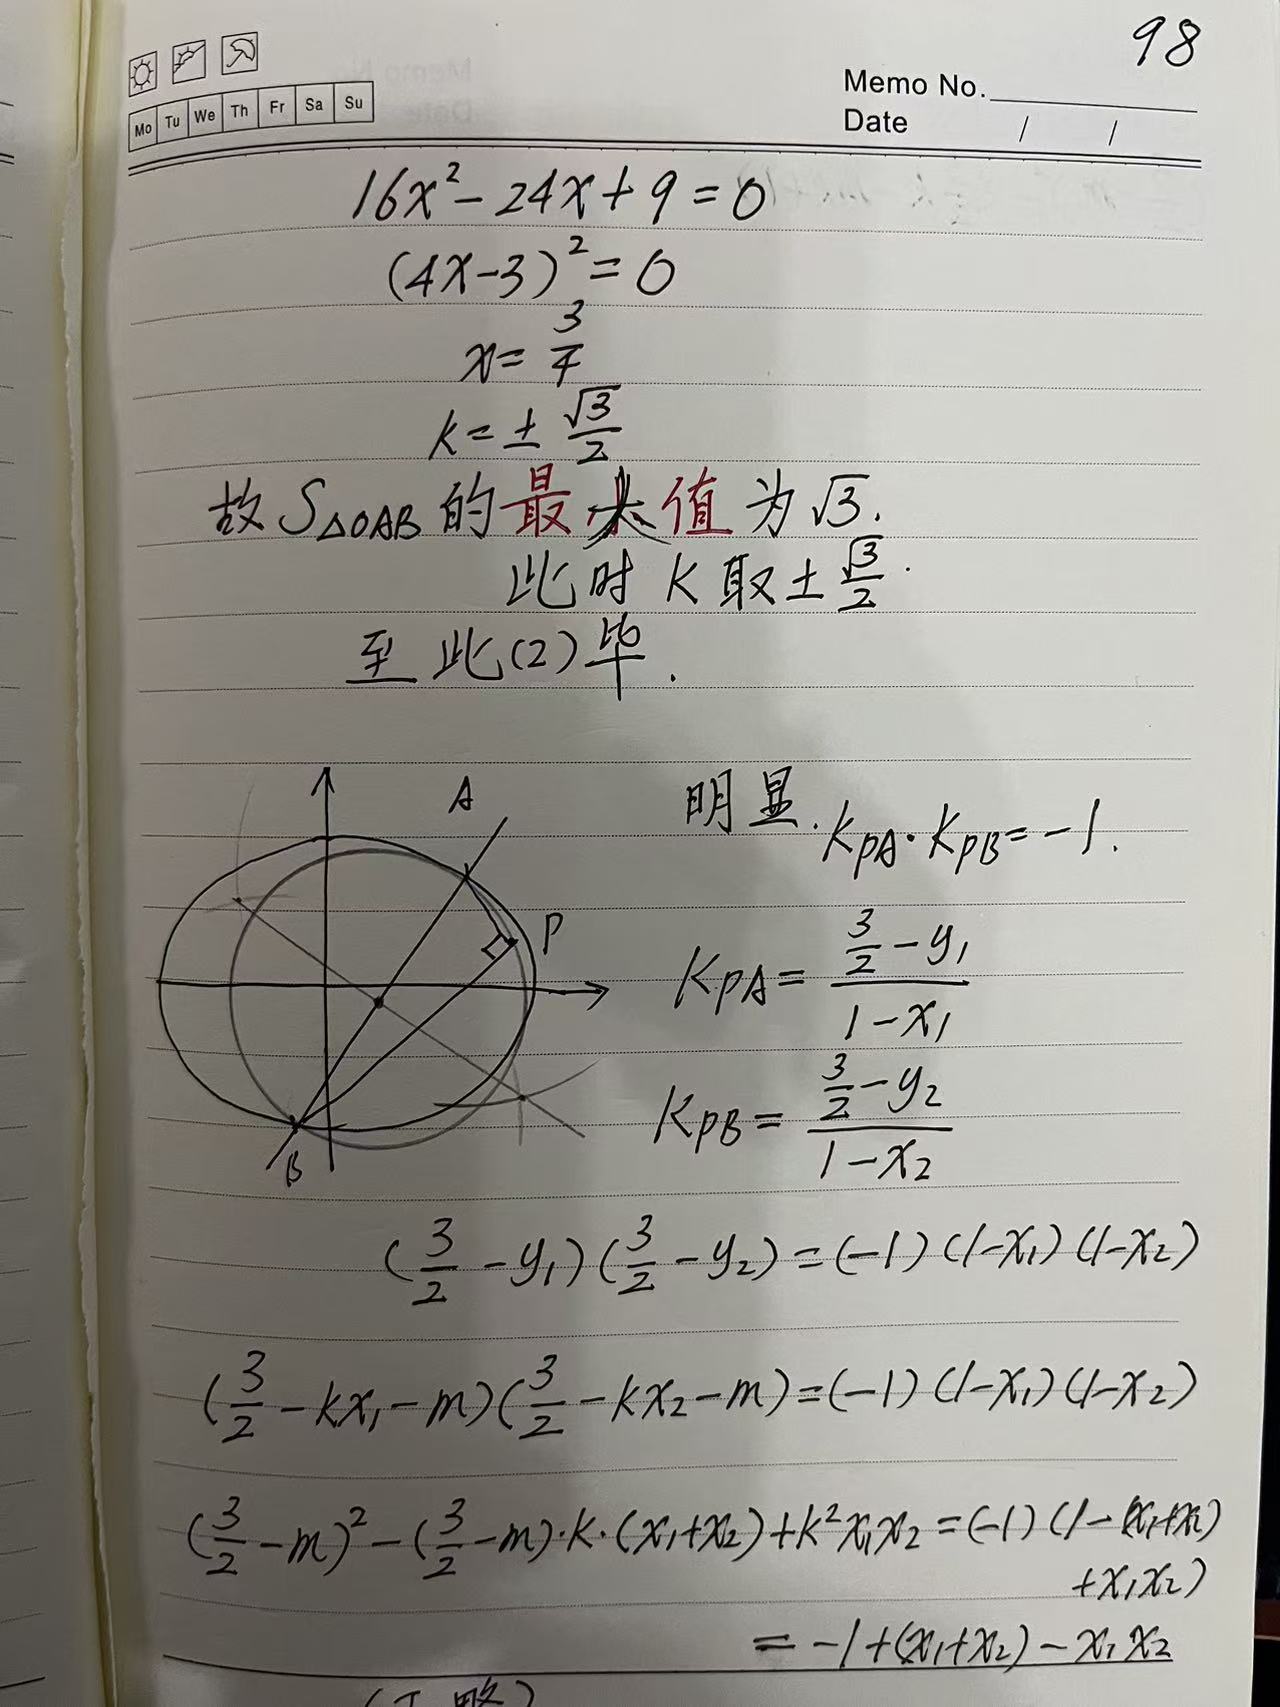 98
Memo No.
Mo Tu We Th Fr Sa Su
Date / /
16x² - 24x + 9 = 0
(4x-3)² = 0
x = 3/4
k = ± √3/2
故 S△OAB 的最大值为√3.
此时 k 取 ± √3/2.
至此(2)毕.
A
明显. kPA·kPB = -1.
P
kPA = (3/2 - y₁)/(1 - x₁)
kPB = (3/2 - y₂)/(1 - x₂)
B
(3/2 - y₁)(3/2 - y₂) = (-1)(1-x₁)(1-x₂)
(3/2 - kx₁ - m)(3/2 - kx₂ - m) = (-1)(1-x₁)(1-x₂)
(3/2 - m)² - (3/2 - m)·k·(x₁+x₂) + k²x₁x₂ = (-1)(1-(x₁+x₂)
+x₁x₂)
= -1+(x₁+x₂) - x₁x₂